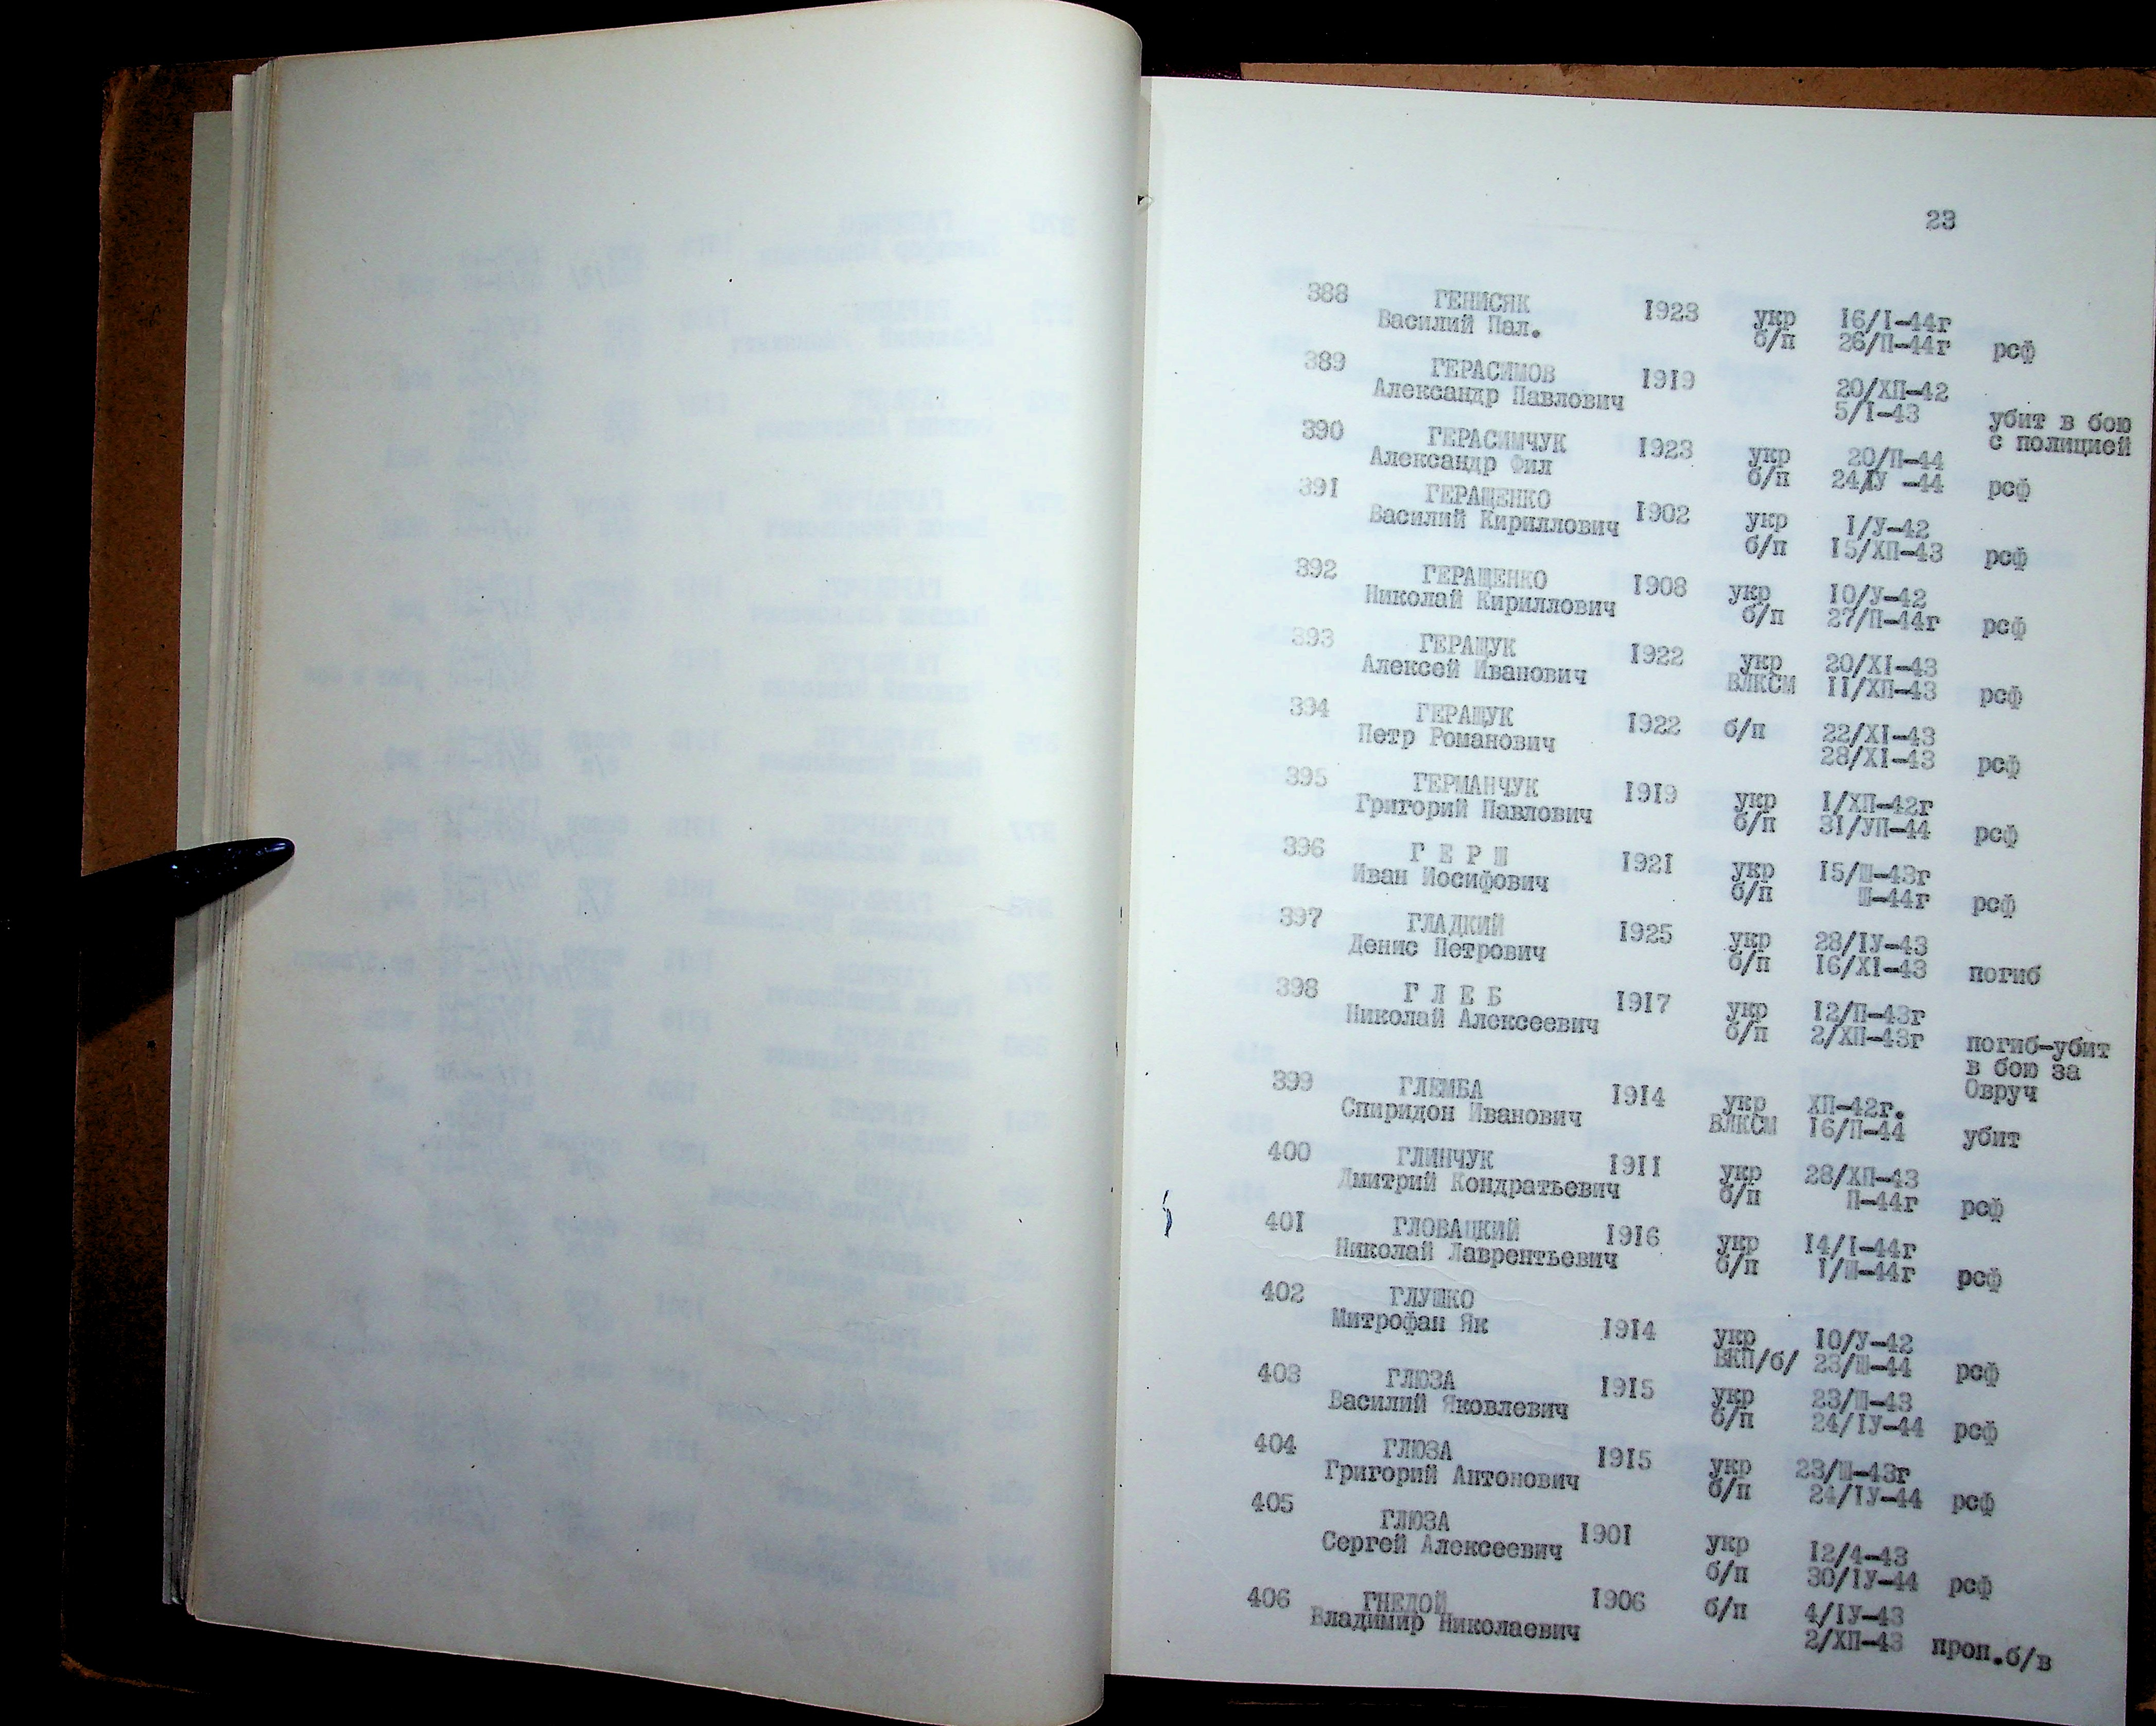 23
388 ГЕНИСЯК 1923 укр 16/I-44г
Василий Пал. б/п 26/П-44г рсф
389 ГЕРАСИМОВ 1919 20/ХП-42
Александр Павлович 5/I-43 убит в бою
с полицией
390 ГЕРАСИМЧУК 1923 укр 20/П-44
Александр Фил б/п 24/IУ -44 рсф
391 ГЕРАЩЕНКО 1902 укр I/У-42
Василий Кириллович б/п 15/ХП-43 рсф
392 ГЕРАЩЕНКО 1908 укр 10/У-42
Николай Кириллович б/п 27/П-44г рсф
393 ГЕРАЩУК 1922 укр 20/XI-43
Алексей Иванович ВЛКСМ II/ХП-43 рсф
394 ГЕРАЩУК 1922 б/п 22/XI-43
Петр Романович 28/XI-43 рсф
395 ГЕРМАНЧУК 1919 укр I/ХП-42г
Григорий Павлович б/п 31/УП-44 рсф
396 Г Е Р Ш 1921 укр 15/Ш-43г
Иван Иосифович б/п Ш-44г рсф
397 ГЛАДКИЙ 1925 укр 28/IУ-43
Денис Петрович б/п 16/XI-43 погиб
398 Г Л Е Б 1917 укр 12/П-43г
Николай Алексеевич б/п 2/ХП-43г погиб-убит
в бою за
Овруч
399 ГЛЕМБА 1914 укр ХП-42г.
Спиридон Иванович ВЛКСМ 16/П-44 убит
400 ГЛИНЧУК 1911 укр 28/ХП-43
Дмитрий Кондратьевич б/п П-44г рсф
401 ГЛОВАЦКИЙ 1916 укр 14/I-44г
Николай Лаврентьевич б/п I/Ш-44г рсф
402 ГЛУШКО
Митрофан Як 1914 укр 10/У-42
ВКП/б/ 23/Ш-44 рсф
403 ГЛЮЗА 1915 укр 23/Ш-43
Василий Яковлевич б/п 24/IУ-44 рсф
404 ГЛЮЗА 1915 укр 23/Ш-43г
Григорий Антонович б/п 24/IУ-44 рсф
405 ГЛЮЗА 1901 укр 12/4-43
Сергей Алексеевич б/п 30/IУ-44 рсф
406 ГНЕДОЙ 1906 б/п 4/IУ-43
Владимир Николаевич 2/ХП-43 проп.б/в